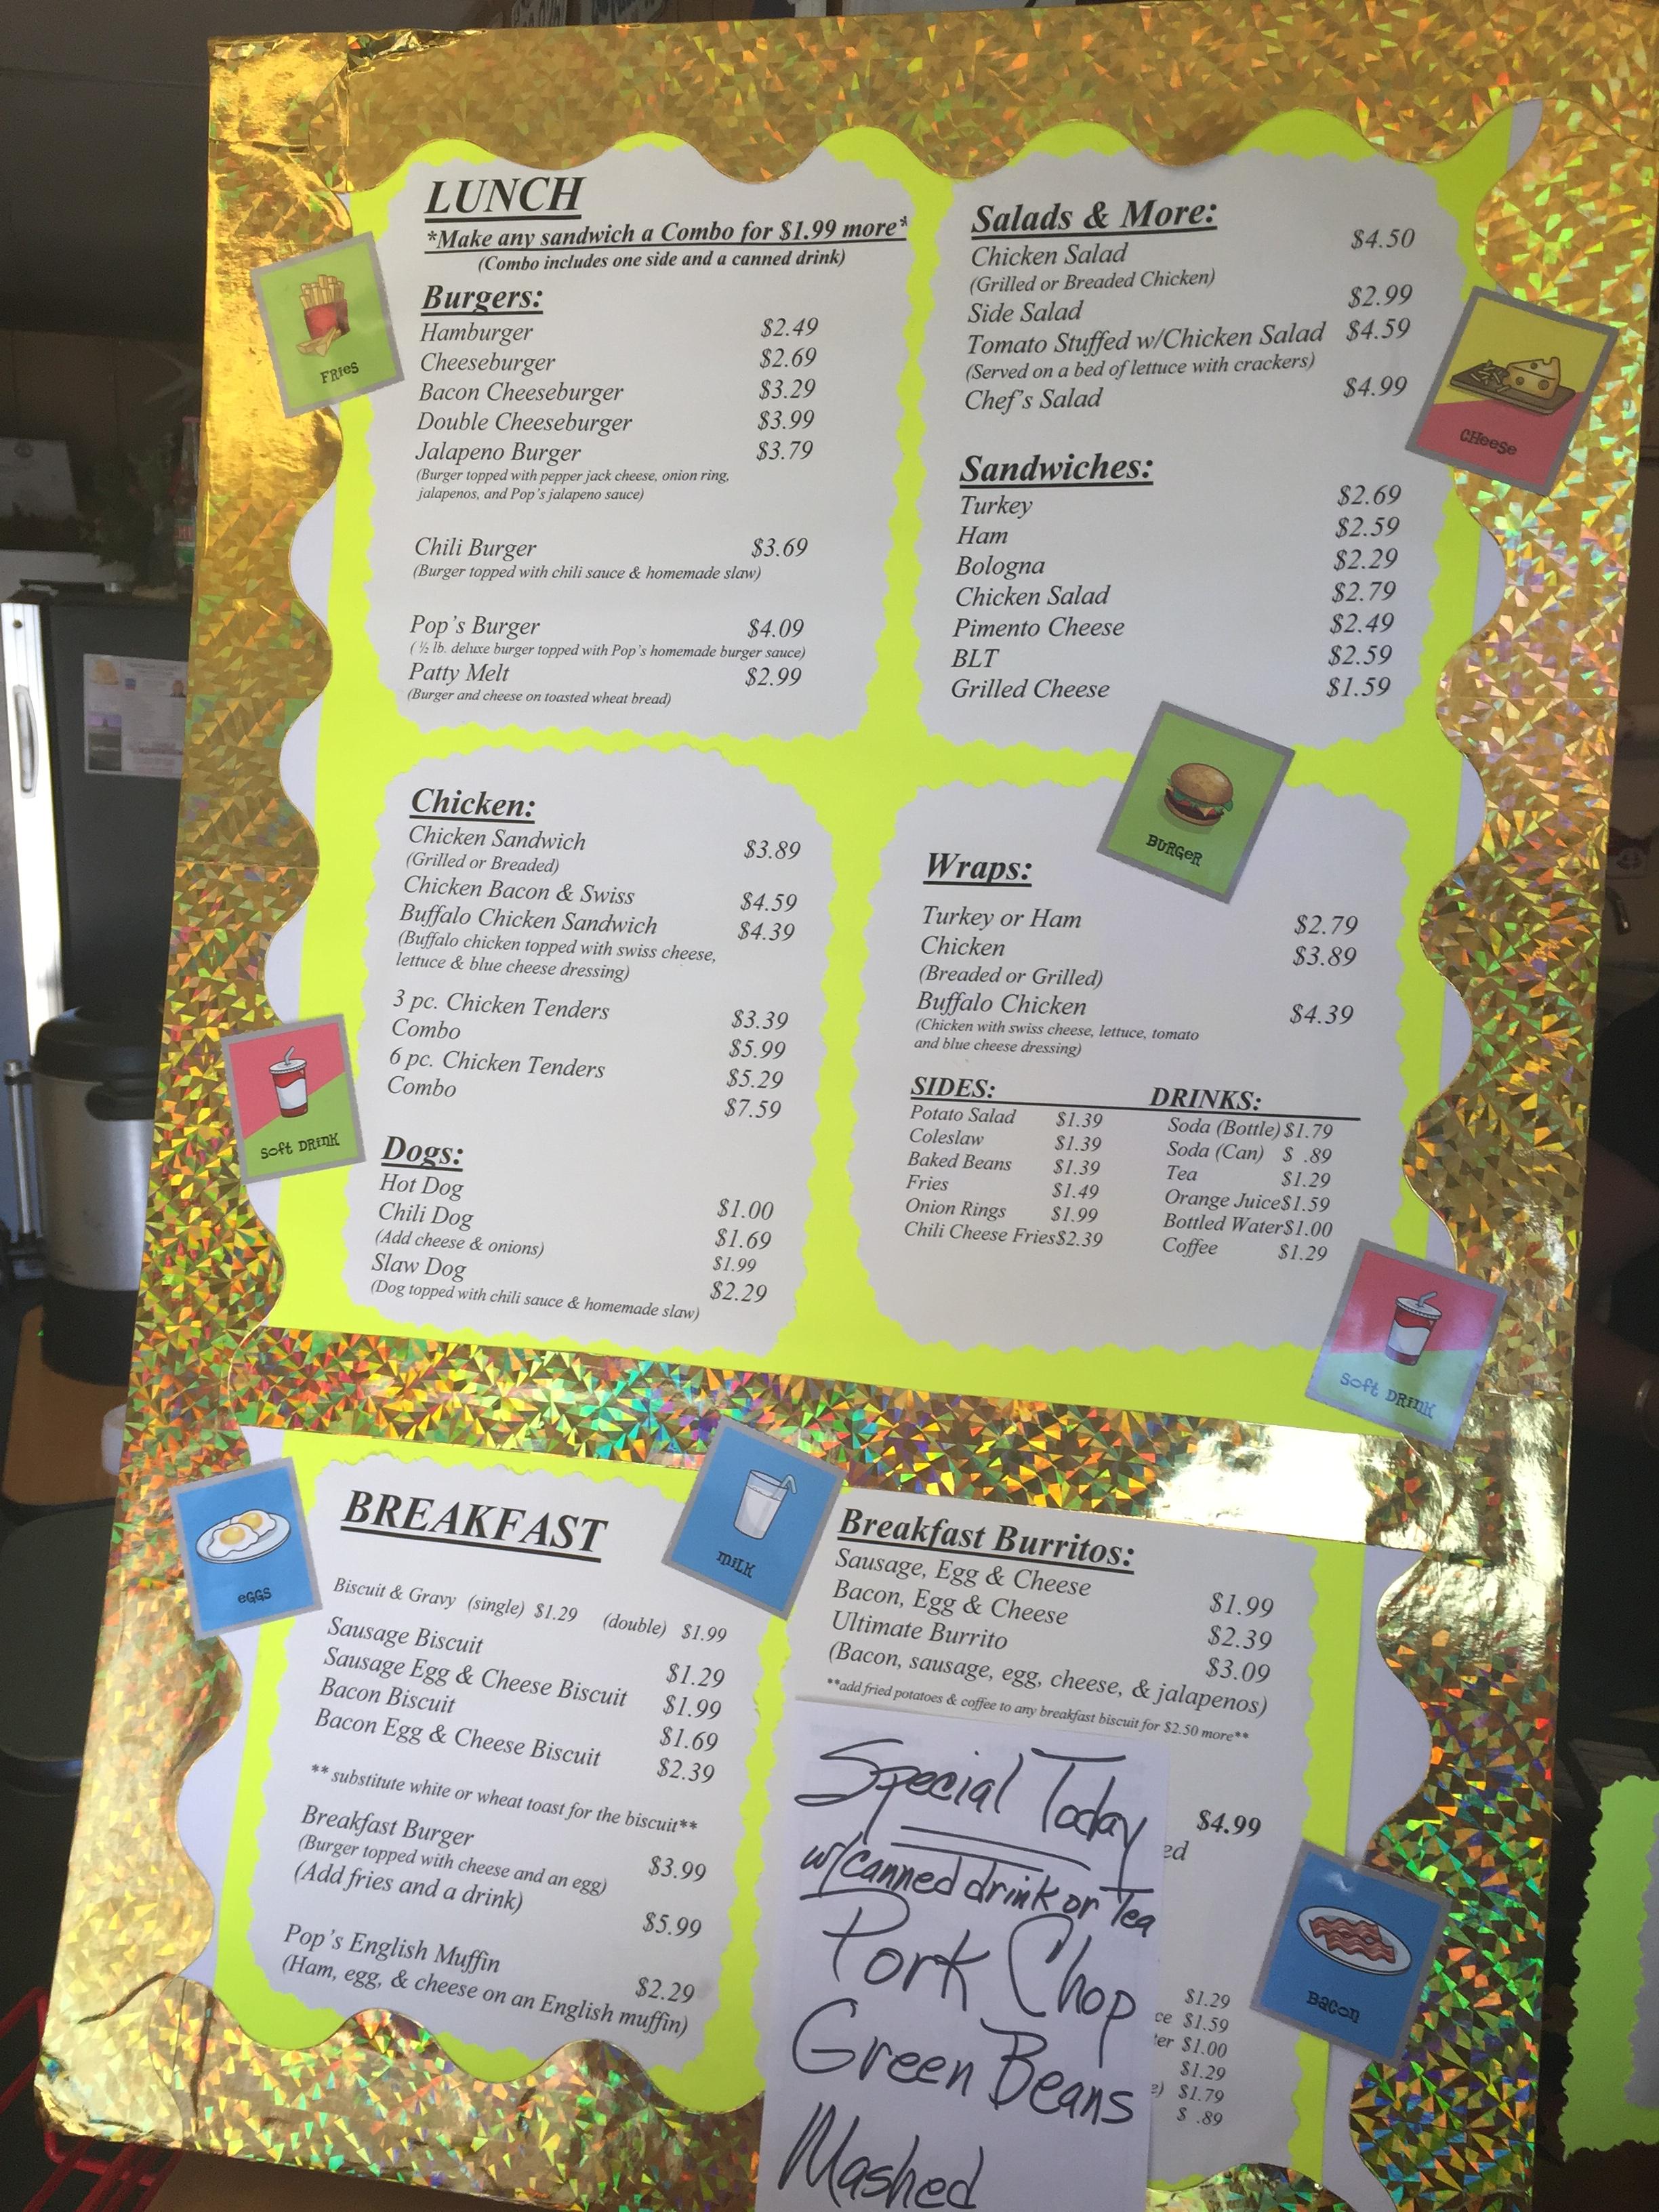 LUNCH
*Make any sandwich a Combo for $1.99 more*
(Combo includes one side and a canned drink)
Burgers:
Hamburger $2.49
Cheeseburger $2.69
Bacon Cheeseburger $3.29
Double Cheeseburger $3.99
Jalapeno Burger $3.79
(Burger topped with pepper jack cheese, onion ring,
jalapenos, and Pop's jalapeno sauce)
Chili Burger $3.69
(Burger topped with chili sauce & homemade slaw)
Pop's Burger $4.09
( ½ lb. deluxe burger topped with Pop's homemade burger sauce)
Patty Melt $2.99
(Burger and cheese on toasted wheat bread)
FRIES
Salads & More:
Chicken Salad $4.50
(Grilled or Breaded Chicken)
Side Salad $2.99
Tomato Stuffed w/Chicken Salad $4.59
(Served on a bed of lettuce with crackers)
Chef's Salad $4.99
CHeeSe
Sandwiches:
Turkey $2.69
Ham $2.59
Bologna $2.29
Chicken Salad $2.79
Pimento Cheese $2.49
BLT $2.59
Grilled Cheese $1.59
BURGeR
Chicken:
Chicken Sandwich $3.89
(Grilled or Breaded)
Chicken Bacon & Swiss $4.59
Buffalo Chicken Sandwich $4.39
(Buffalo chicken topped with swiss cheese,
lettuce & blue cheese dressing)
3 pc. Chicken Tenders $3.39
Combo $5.99
6 pc. Chicken Tenders $5.29
Combo $7.59
SOFT DRINK
Dogs:
Hot Dog $1.00
Chili Dog $1.69
(Add cheese & onions) $1.99
Slaw Dog $2.29
(Dog topped with chili sauce & homemade slaw)
Wraps:
Turkey or Ham $2.79
Chicken $3.89
(Breaded or Grilled)
Buffalo Chicken $4.39
(Chicken with swiss cheese, lettuce, tomato
and blue cheese dressing)
SIDES:
Potato Salad $1.39
Coleslaw $1.39
Baked Beans $1.39
Fries $1.49
Onion Rings $1.99
Chili Cheese Fries $2.39
DRINKS:
Soda (Bottle) $1.79
Soda (Can) $ .89
Tea $1.29
Orange Juice $1.59
Bottled Water $1.00
Coffee $1.29
SOFT DRINK
BREAKFAST
Biscuit & Gravy (single) $1.29 (double) $1.99
Sausage Biscuit $1.29
Sausage Egg & Cheese Biscuit $1.99
Bacon Biscuit $1.69
Bacon Egg & Cheese Biscuit $2.39
** substitute white or wheat toast for the biscuit**
Breakfast Burger $3.99
(Burger topped with cheese and an egg)
(Add fries and a drink) $5.99
Pop's English Muffin $2.29
(Ham, egg, & cheese on an English muffin)
eGGS
MILK
Breakfast Burritos:
Sausage, Egg & Cheese $1.99
Bacon, Egg & Cheese $2.39
Ultimate Burrito $3.09
(Bacon, sausage, egg, cheese, & jalapenos)
**add fried potatoes & coffee to any breakfast biscuit for $2.50 more**
Special Today
w/canned drink or Tea
Pork Chop
Green Beans
Mashed
$4.99
ed
$1.29
ce $1.59
ter $1.00
$1.29
e) $1.79
$ .89
BaCON